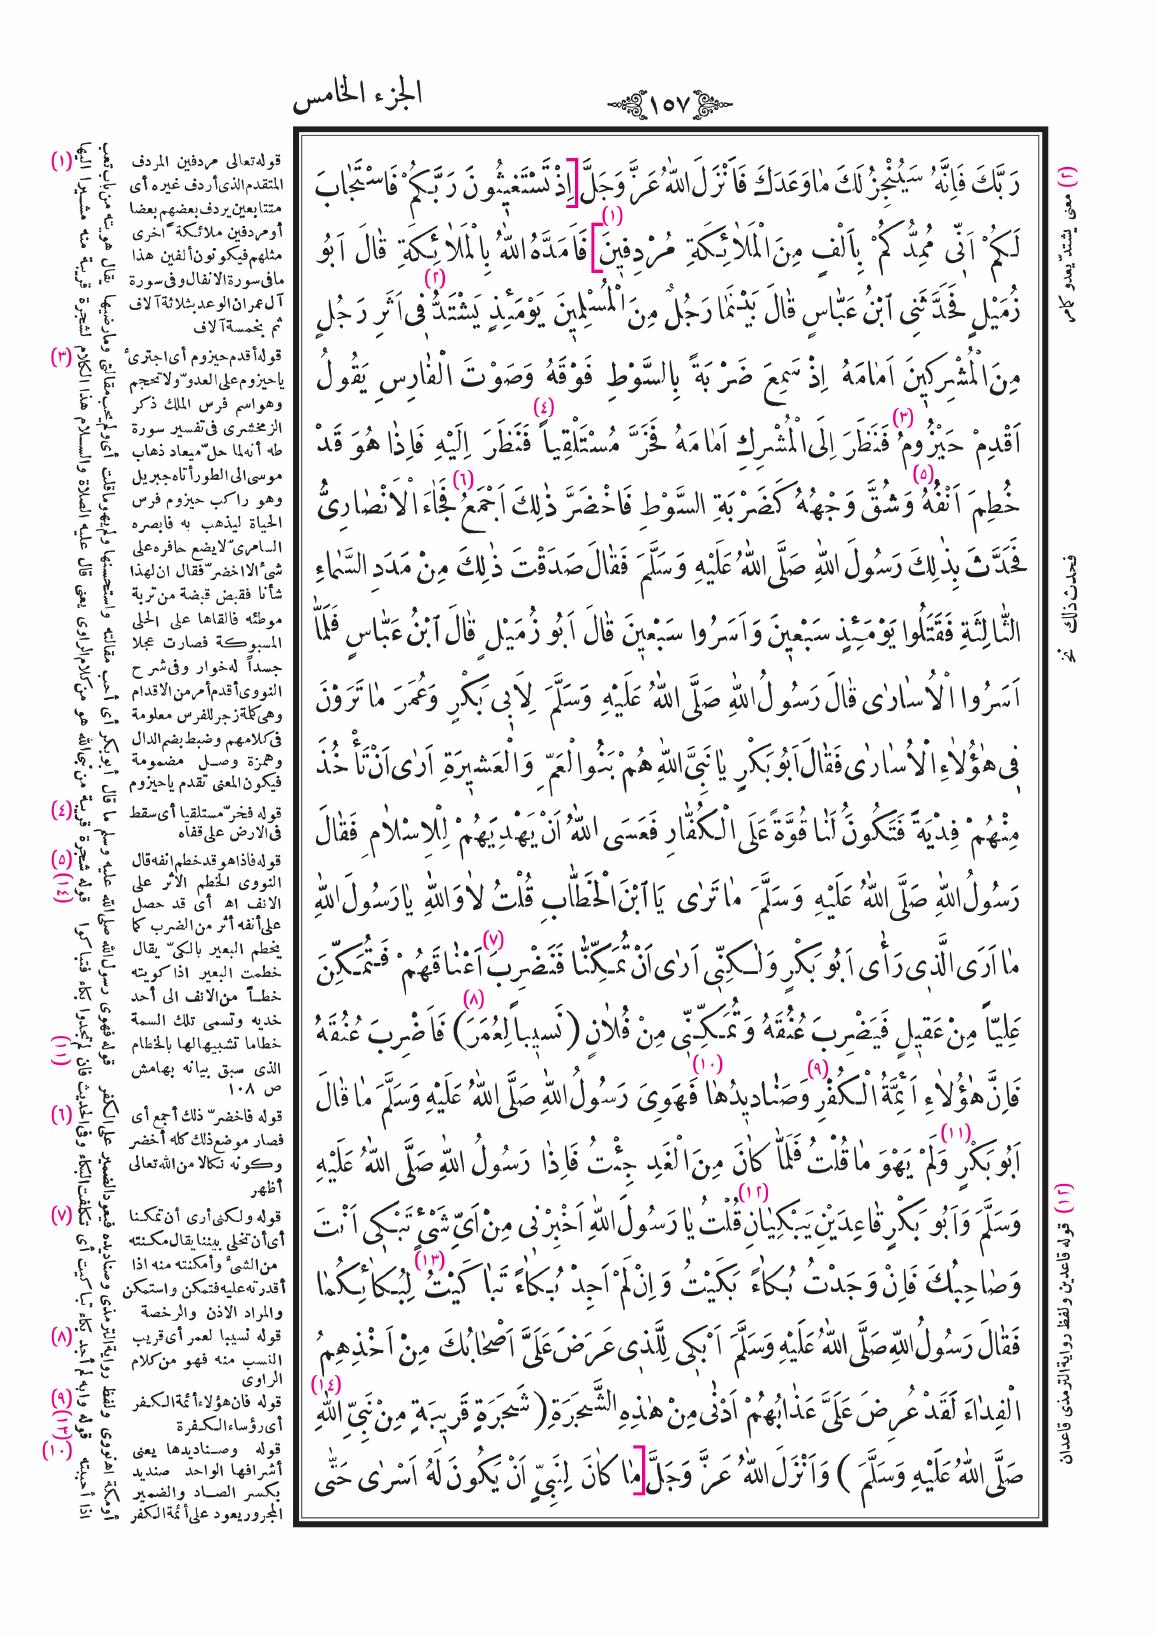 الجزء الخامس
١٥٧
رَبَّكَ فَاِنَّهُ سَيُنْجِزُ لَكَ مَا وَعَدَكَ فَاَنْزَلَ اللّٰهُ عَزَّ وَجَلَّ [اِذْ تَسْتَغيثُونَ رَبَّكُمْ فَاسْتَجَابَ
لَكُمْ اَنّى مُمِدُّكُمْ بِاَلْفٍ مِنَ الْمَلاٰئِكَةِ مُرْدِفينَ (١)] فَاَمَدَّهُ اللّٰهُ بِالْمَلاٰئِكَةِ قَالَ اَبُو
زُمَيْلٍ فَحَدَّثَنِى ابْنُ عَبَّاسٍ قَالَ بَيْنَمَا رَجُلٌ مِنَ الْمُسْلِمِينَ يَوْمَئِذٍ يَشْتَدُّ (٢) فِى اَثَرِ رَجُلٍ
مِنَ الْمُشْرِكِينَ اَمَامَهُ اِذْ سَمِعَ ضَرْبَةً بِالسَّوْطِ فَوْقَهُ وَصَوْتَ الْفَارِسِ يَقُولُ
اَقْدِمْ حَيْزُومُ (٣) فَنَظَرَ اِلَى الْمُشْرِكِ اَمَامَهُ فَخَرَّ مُسْتَلْقِياً (٤) فَنَظَرَ اِلَيْهِ فَاِذَا هُوَ قَدْ
خُطِمَ اَنْفُهُ (٥) وَشُقَّ وَجْهُهُ كَضَرْبَةِ السَّوْطِ فَاخْضَرَّ ذٰلِكَ اَجْمَعُ (٦) فَجَاءَ الْاَنْصَارِىُّ
فَحَدَّثَ بِذٰلِكَ رَسُولَ اللّٰهِ صَلَّى اللّٰهُ عَلَيْهِ وَسَلَّمَ فَقَالَ صَدَقْتَ ذٰلِكَ مِنْ مَدَدِ السَّمَاءِ
الثَّالِثَةِ فَقَتَلُوا يَوْمَئِذٍ سَبْعِينَ وَاَسَرُوا سَبْعِينَ قَالَ اَبُو زُمَيْلٍ قَالَ ابْنُ عَبَّاسٍ فَلَمَّا
اَسَرُوا الْاُسَارٰى قَالَ رَسُولُ اللّٰهِ صَلَّى اللّٰهُ عَلَيْهِ وَسَلَّمَ لِاَبِى بَكْرٍ وَعُمَرَ مَا تَرَوْنَ
فِى هٰؤُلاٰءِ الْاُسَارٰى فَقَالَ اَبُو بَكْرٍ يَا نَبِىَّ اللّٰهِ هُمْ بَنُوا الْعَمِّ وَالْعَشِيرَةِ اَرٰى اَنْ تَأْخُذَ
مِنْهُمْ فِدْيَةً فَتَكُونُ لَنَا قُوَّةً عَلَى الْكُفَّارِ فَعَسَى اللّٰهُ اَنْ يَهْدِيَهُمْ لِلْاِسْلاٰمِ فَقَالَ
رَسُولُ اللّٰهِ صَلَّى اللّٰهُ عَلَيْهِ وَسَلَّمَ مَا تَرٰى يَا ابْنَ الْخَطَّابِ قُلْتُ لاٰ وَاللّٰهِ يَا رَسُولَ اللّٰهِ
مَا اَرَى الَّذِى رَأٰى اَبُو بَكْرٍ وَلٰكِنِّى اَرٰى اَنْ تُمَكِّنَّا (٧) فَنَضْرِبَ اَعْنَاقَهُمْ فَتُمَكِّنَ
عَلِيّاً مِنْ عَقِيلٍ فَيَضْرِبَ عُنُقَهُ وَتُمَكِّنِّى مِنْ فُلاٰنٍ (نَسِيباً لِعُمَرَ) (٨) فَاَضْرِبَ عُنُقَهُ
فَاِنَّ هٰؤُلاٰءِ اَئِمَّةُ الْكُفْرِ (٩) وَصَنَادِيدُهَا (١٠) فَهَوِىَ رَسُولُ اللّٰهِ صَلَّى اللّٰهُ عَلَيْهِ وَسَلَّمَ مَا قَالَ
اَبُو بَكْرٍ وَلَمْ يَهْوَ (١١) مَا قُلْتُ فَلَمَّا كَانَ مِنَ الْغَدِ جِئْتُ فَاِذَا رَسُولُ اللّٰهِ صَلَّى اللّٰهُ عَلَيْهِ
وَسَلَّمَ وَاَبُو بَكْرٍ قَاعِدَيْنِ يَبْكِيَانِ (١٢) قُلْتُ يَا رَسُولَ اللّٰهِ اَخْبِرْنِى مِنْ اَىِّ شَىْءٍ تَبْكِى اَنْتَ
وَصَاحِبُكَ فَاِنْ وَجَدْتُ بُكَاءً بَكَيْتُ وَاِنْ لَمْ اَجِدْ بُكَاءً تَبَاكَيْتُ (١٣) لِبُكَائِكُمَا
فَقَالَ رَسُولُ اللّٰهِ صَلَّى اللّٰهُ عَلَيْهِ وَسَلَّمَ اَبْكِى لِلَّذِى عَرَضَ عَلَىَّ اَصْحَابُكَ مِنْ اَخْذِهِمُ
الْفِدَاءَ لَقَدْ عُرِضَ عَلَىَّ عَذَابُهُمْ اَدْنٰى مِنْ هٰذِهِ الشَّجَرَةِ (شَجَرَةٍ قَرِيبَةٍ مِنْ نَبِىِّ اللّٰهِ (١٤)
صَلَّى اللّٰهُ عَلَيْهِ وَسَلَّمَ) وَاَنْزَلَ اللّٰهُ عَزَّ وَجَلَّ [مَا كَانَ لِنَبِىٍّ اَنْ يَكُونَ لَهُ اَسْرٰى حَتّٰى
(١) قوله تعالى مردفين المردف
المتقدم الذى أردف غيره أى
متتابعين يردف بعضهم بعضا
أو مردفين ملائكة اخرى
مثلهم فيكونون ألفين هذا
ما فى سورة الانفال وفى سورة
آل عمران الوعد بثلاثة آلاف
ثم بخمسة آلاف
(٣) قوله أقدم حيزوم أى اجترئ
يا حيزوم على العدوّ ولا تحجم
وهو اسم فرس الملك ذكر
الزمخشرى فى تفسير سورة
طه أنه لما حلّ ميعاد ذهاب
موسى الى الطور أتاه جبريل
وهو راكب حيزوم فرس
الحياة ليذهب به فابصره
السامرىّ لا يضع حافره على
شئ الا اخضرّ فقال ان لهذا
شأنا فقبض قبضة من تربة
موطئه فالقاها على الحلى
المسبوكة فصارت عجلا
جسداً له خوار وفى شرح
النووى أقدم أمر من الاقدام
وهى كلمة زجر للفرس معلومة
فى كلامهم وضبط بضم الدال
وهمزة وصل مضمومة
فيكون المعنى تقدم يا حيزوم
(٤) قوله فخرّ مستلقيا أى سقط
فى الارض على قفاه
(٥) قوله فاذا هو قد خطم انفه قال
النووى الخطم الأثر على
الانف اه أى قد حصل
على أنفه أثر من الضرب كما
يخطم البعير بالكىّ يقال
خطمت البعير اذا كويته
خطاً من الانف الى أحد
خديه وتسمى تلك السمة
خطاما تشبيها لها بالخطام
الذى سبق بيانه بهامش
ص ١٠٨
(٦) قوله فاخضرّ ذلك أجمع أى
فصار موضع ذلك كله أخضر
وكونه نكالا من الله تعالى
أظهر
(٧) قوله ولكنى أرى أن تمكننا
أى أن تخلى بيننا يقال مكنته
من الشئ وأمكنته منه اذا
أقدرته عليه فتمكن واستمكن
والمراد الاذن والرخصة
(٨) قوله نسيبا لعمر أى قريب
النسب منه فهو من كلام
الراوى
(٩) قوله فان هؤلاء أئمة الكفر
أى رؤساء الكفرة
(١٠) قوله وصناديدها يعنى
أشرافها الواحد صنديد
بكسر الصاد والضمير
المجرور يعود على أئمة الكفر
أو مكة اه نووى ولفظ رواية الترمذى وصناديده فيعود الضمير على الكفر (١١) قوله فهوى رسول الله صلى الله عليه وسلم ما قال أبو بكر أى أحب مقالته واستحسنها ولم يهو ما قلت أى ولم يحب مقالتى وما رضيها يقال هويته من باب تعب
اذا أحببته (١٣) قوله وان لم أجد بكاء تباكيت أى تكلفت البكاء وفى الحديث فان لم تجدوا بكاء فتباكوا (١٤) قوله شجرة قريبة من نبى الله هو من كلام الراوى يعنى قال عليه الصلاة والسلام هذا الكلام لشجرة قريبة منه مشيرا اليها
(٢) معنى يشتدّ يعدو كما مر
فحدث ذلك نخ
(١٢) قوله قاعدين ولفظ رواية الترمذى قاعدان